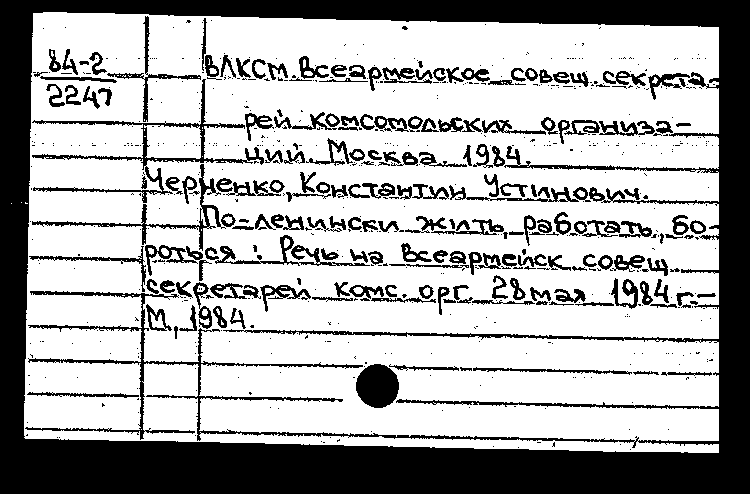 84-2
2247
ВЛКСМ. Всеармейское совещ. секрета-
рей комсомольских организа-
ций. Москва. 1984.
Черненко, Константин Устинович.
По-ленински жить, работать, бо-
роться: Речь на Всеармейск совещ
секретарей комс. орг. 28 мая 1984 г.-
М., 1984.